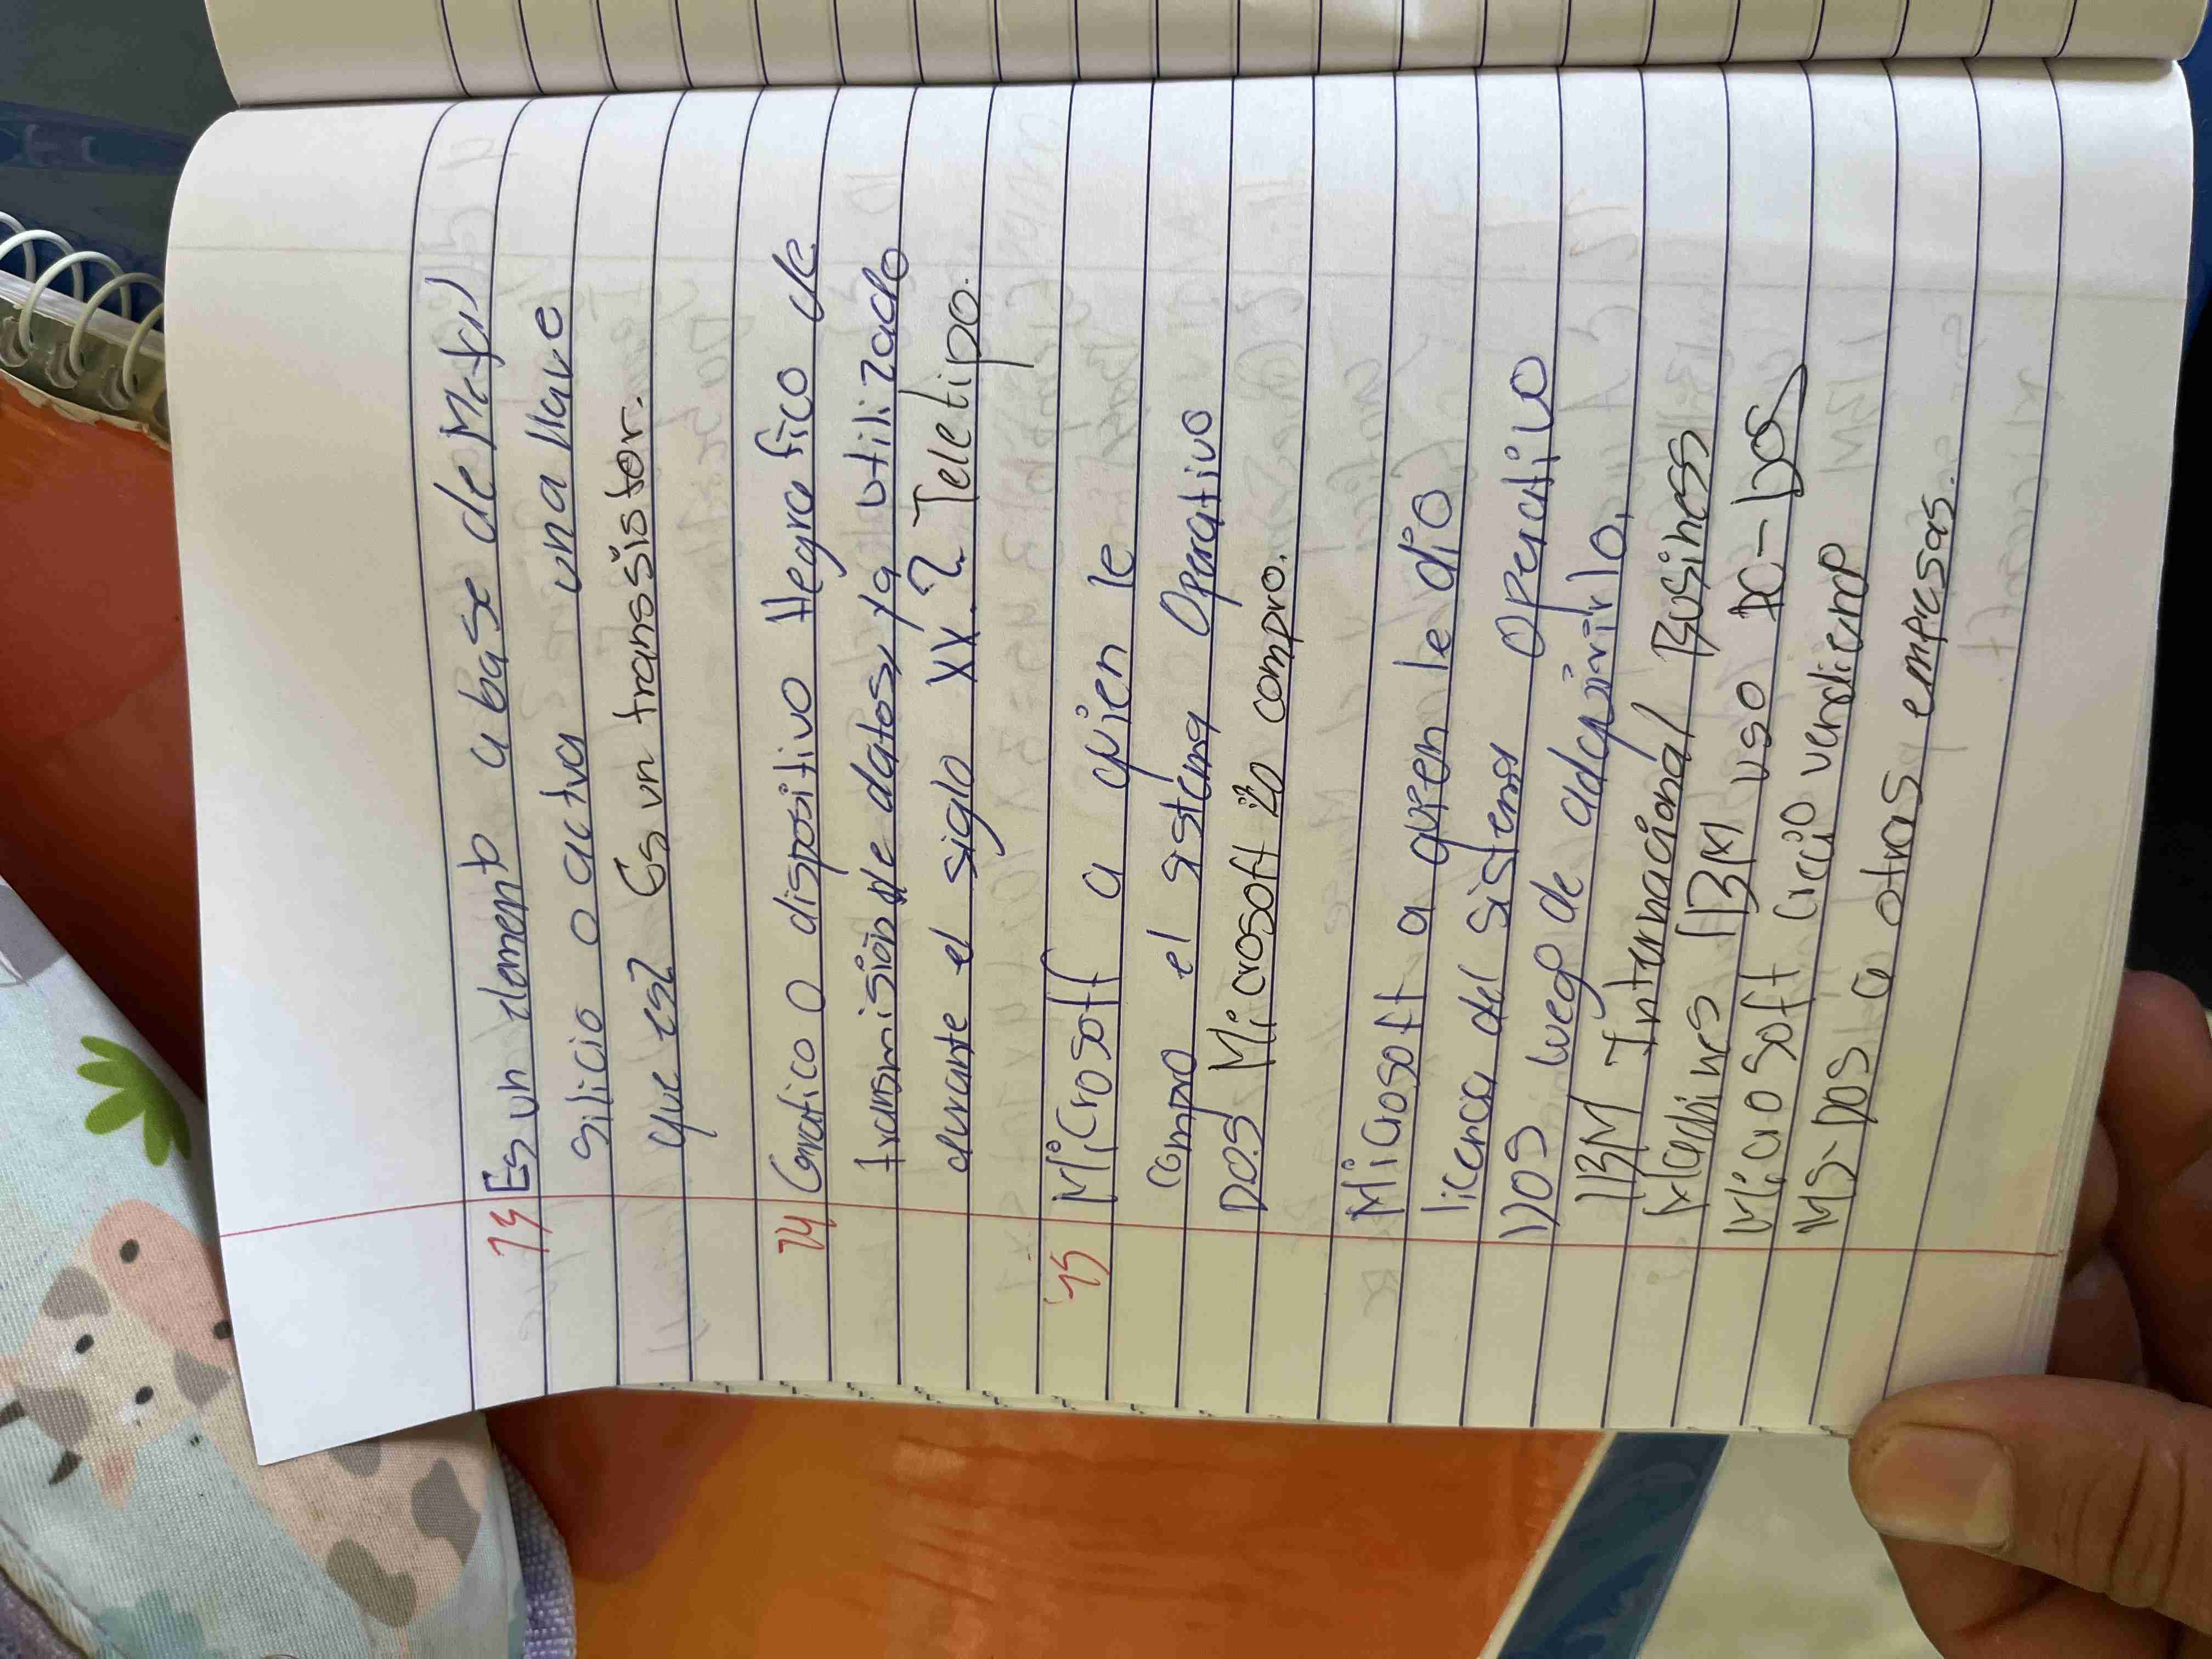 73 Es un elemento a base de Metal
silicio o activa una llave
que es? Es un transsistor.
74 Genetico o dispositivo telegrafico de
transmisión de datos, ya utilizado
durante el siglo XX.? Teletipo.
75 Microsoft a quien le
compro el sistema Operativo
DOS Microsoft lo compro.
Microsoft a quien le dio
licencia del sistema operativo
DOS luego de adquirirlo.
IBM Internacional Business
Machines IBM uso PC-DOS
Microsoft creció vendiendo
MS-DOS a otras empresas.